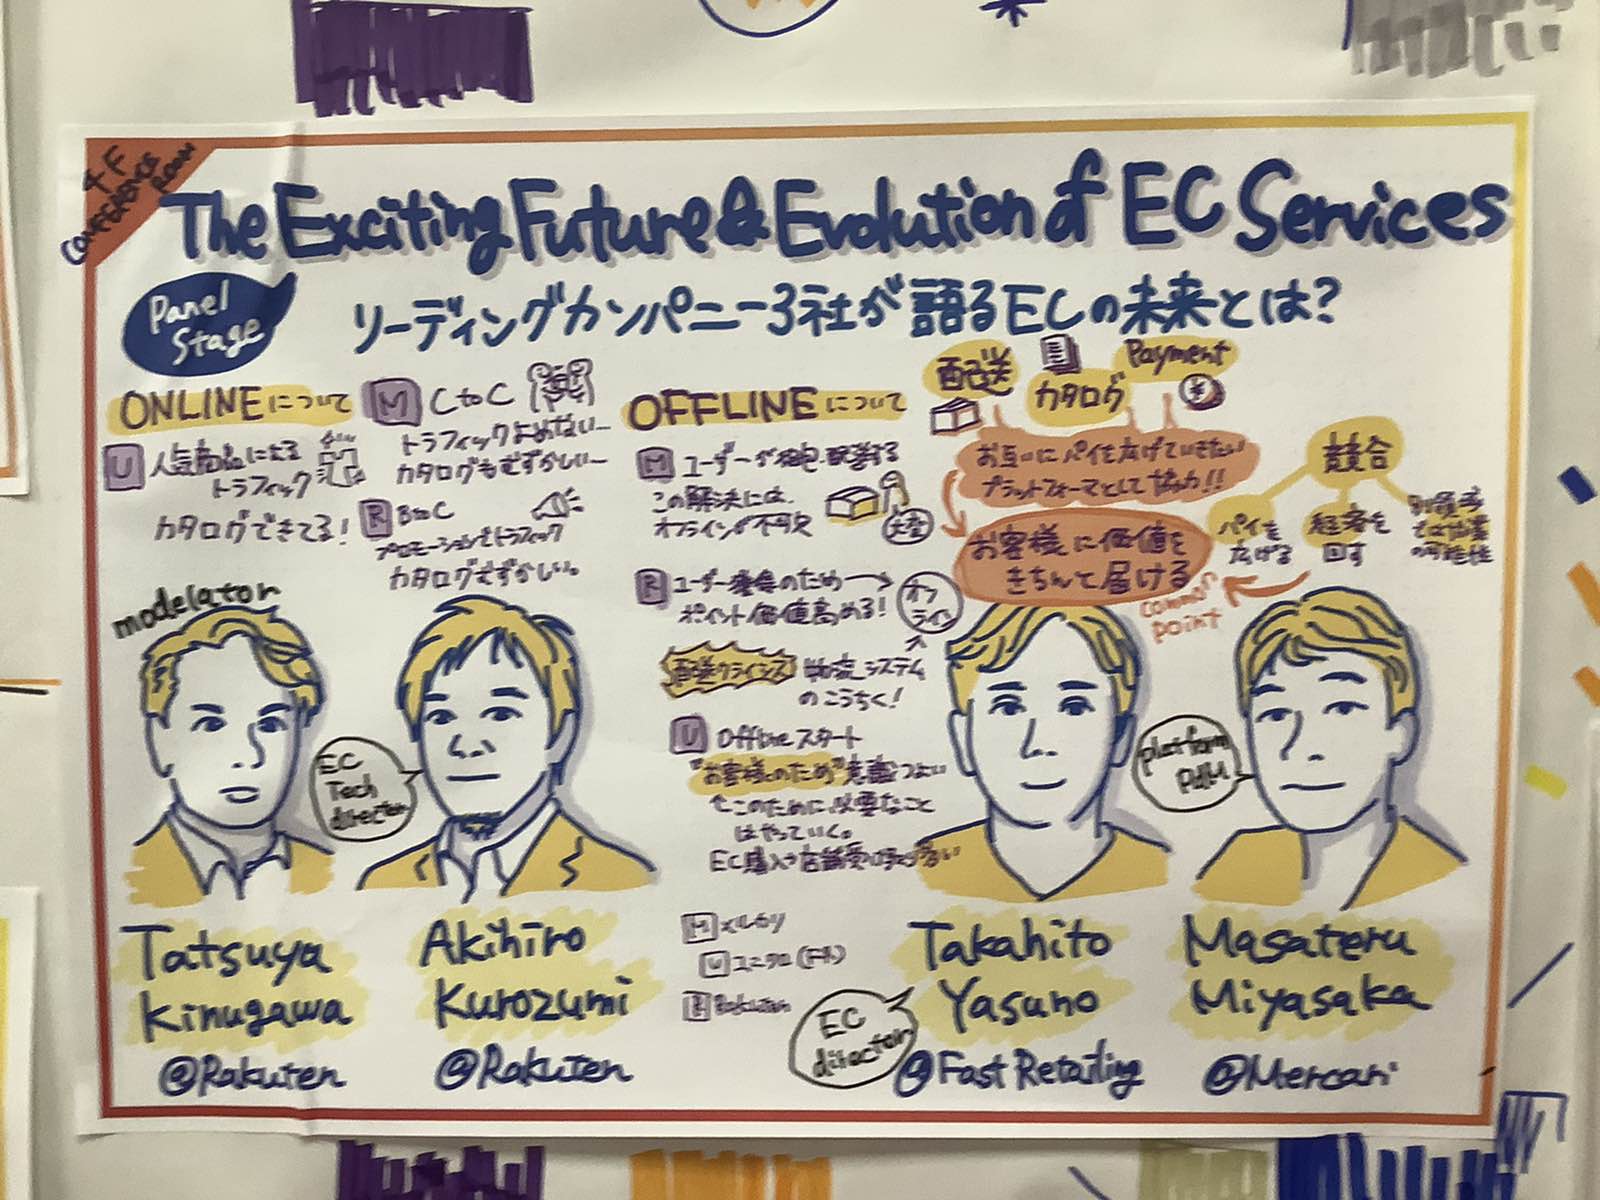 4F
CONFERENCE
ROOM
The Exciting Future & Evolution of EC Services
Panel
Stage
リーディングカンパニー3社が語るECの未来とは?
ONLINEについて
U 人気商品による
トラフィック
カタログできてる!
M CtoC
トラフィックよめない
カタログもむずかしい
R BtoC
プロモーションでトラフィック
カタログむずかしい。
OFFLINEについて
M ユーザーが梱包・配送する
この解決には、
オフラインが不可欠
大変
R ユーザー獲得のため
ポイント価値高める!
オフ
ライン
配送クライシス 物流システム
のこうちく!
U Offlineスタート
"お客様のため"意識つよい
そのために必要なこと
はやっていく。
EC購入→店舗受け取り多い
配送
カタログ
Payment
¥
お互いにパイを広げていきたい
プラットフォーマとして協力!!
お客様に価値を
きちんと届ける
common
point
競合
パイを
広げる
経済を
回す
別領域
では協業
の可能性
modelator
EC
Tech
director
platform
PdM
M メルカリ
U ユニクロ(F.R.)
R Rakuten
EC
director
Tatsuya
Kinugawa
@Rakuten
Akihiro
Kurozumi
@Rakuten
Takahito
Yasuno
@Fast Retailing
Masateru
Miyasaka
@Mercari